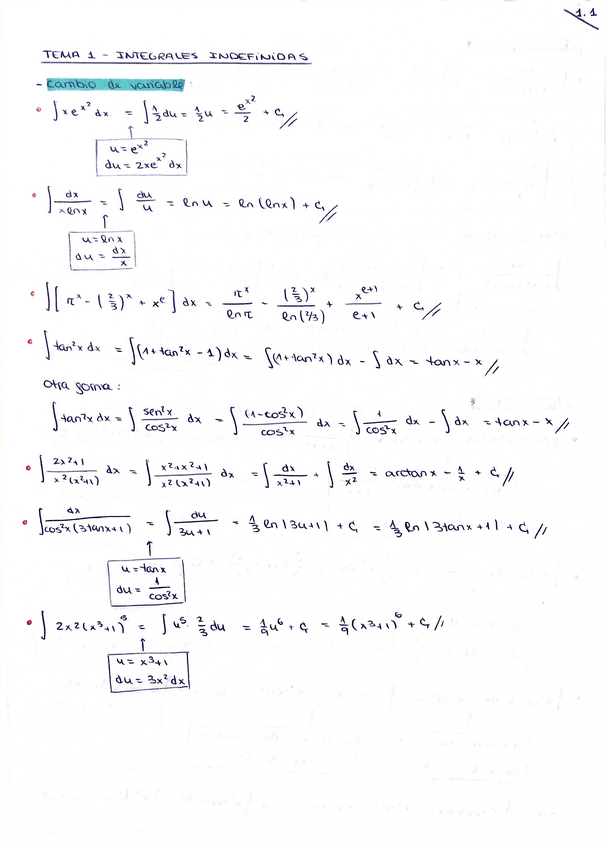 1.1
TEMA 1 - INTEGRALES INDEFINIDAS
- Cambio de variable:
• ∫ x e^(x²) dx = ∫ 1/2 du = 1/2 u = e^(x²)/2 + C₁ //
u = e^(x²)
du = 2xe^(x²) dx
• ∫ dx/(x ln x) = ∫ du/u = ln u = ln (ln x) + C₁ //
u = ln x
du = dx/x
• ∫ [π^x - (2/3)^x + x^e] dx = π^x/ln π - (2/3)^x/ln(2/3) + x^(e+1)/(e+1) + C₁ //
• ∫ tan²x dx = ∫ (1 + tan²x - 1) dx = ∫ (1 + tan²x) dx - ∫ dx = tan x - x //
Otra forma:
∫ tan²x dx = ∫ sen²x/cos²x dx = ∫ (1-cos²x)/cos²x dx = ∫ 1/cos²x dx - ∫ dx = tan x - x //
• ∫ (2x²+1)/(x²(x²+1)) dx = ∫ (x²+x²+1)/(x²(x²+1)) dx = ∫ dx/(x²+1) + ∫ dx/x² = arctan x - 1/x + C₁ //
• ∫ dx/(cos²x (3tanx+1)) = ∫ du/(3u+1) = 1/3 ln |3u+1| + C₁ = 1/3 ln |3tanx+1| + C₁ //
u = tan x
du = 1/cos²x
• ∫ 2x2(x³+1)⁵ = ∫ u⁵ · 2/3 du = 1/9 u⁶ + C₁ = 1/9 (x³+1)⁶ + C₁ //
u = x³+1
du = 3x² dx